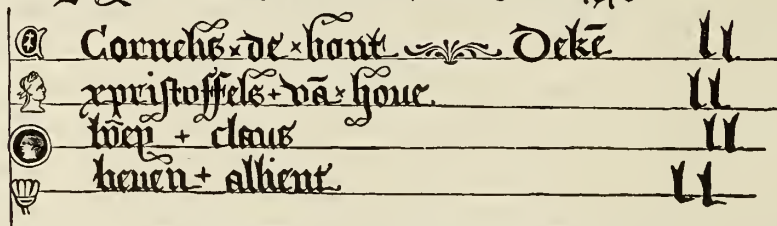 Cornelis × de × bont Dekē ll
xpristoffels + vā × houe. ll
+ claus ll
heuen + allient ll